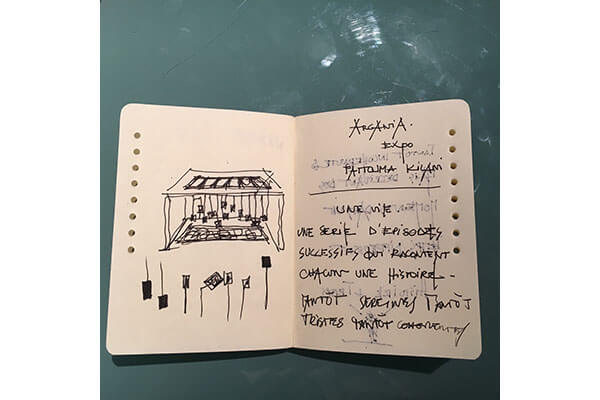 ARGANIA.
EXPO
FATTOUMA KILANI
UNE VIE
UNE SERIE D'EPISODES
SUCCESSIFS QUI RACONTENT
CHACUN UNE HISTOIRE -
TANTÔT SEREINES TANTÔT
TRISTES TANTÔT